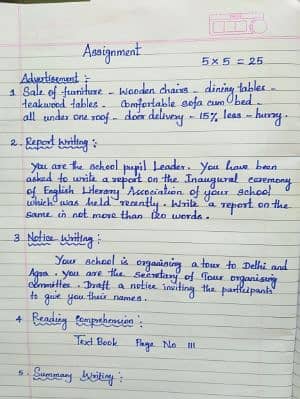 Assignment
5 x 5 = 25
Advertisement :
1 Sale of furniture - Wooden chairs - dining tables -
teakwood tables - Comfortable sofa cum bed -
all under one roof - door delivery - 15% less - hurry.
2. Report Writing :
You are the school pupil Leader. You have been
asked to write a report on the Inaugural ceremony
of English Literary Association of your school
which was held recently. Write a report on the
same in not more than 120 words.
3 Notice Writing :
Your school is organising a tour to Delhi and
Agra. You are the Secretary of Tour organising
Committee. Draft a notice inviting the participants
to give you their names.
4 Reading Comprehension :
Text Book Page No 111
5. Summary Writing :